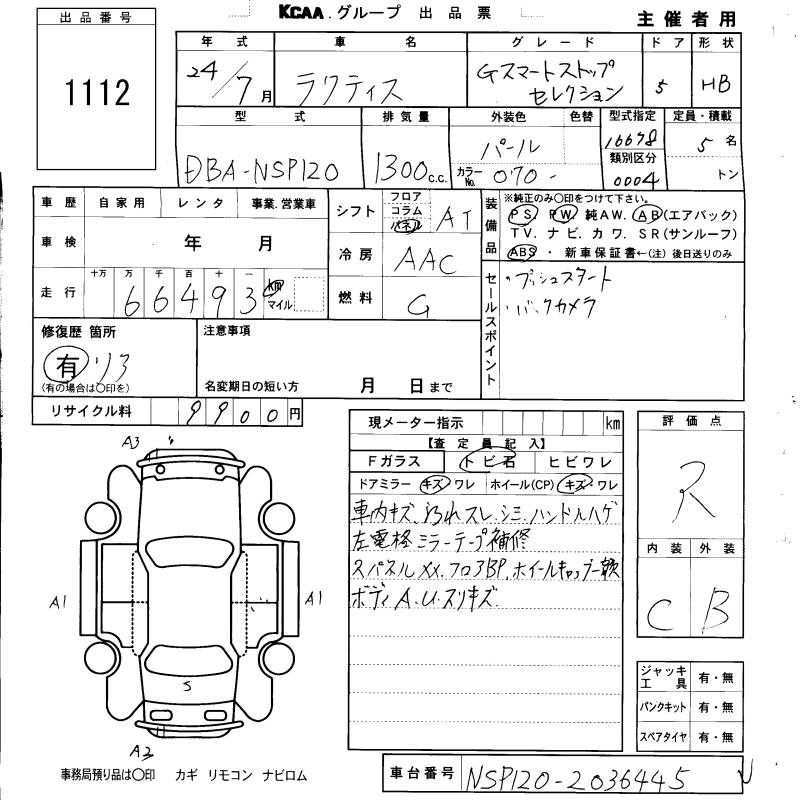 KCAA.グループ 出品票
主催者用
出品番号
1112
年式 車名 グレード ドア 形状
24/7月 ラクティス Gスマートストップ セレクション 5 HB
型式 排気量 外装色 色替 型式指定 定員・積載
DBA-NSP120 1300c.c. パール カラーNo. 070 - 16678 5名
類別区分 0004 トン
車歴 自家用 レンタ 事業.営業車
車検 年 月
走行 十万 万 千 百 十 一
66493 km マイル
シフト フロア コラム パネル AT
冷房 AAC
燃料 G
装備品 ※純正のみ○印をつけて下さい。
PS PW 純AW. AB(エアバック)
TV. ナビ. カワ. SR(サンルーフ)
ABS・新車保証書←(注)後日送りのみ
セールスポイント
・プッシュスタート
・バックカメラ
修復歴 箇所
有 リア
(有の場合は○印を)
注意事項
名変期日の短い方 月 日まで
リサイクル料 9900円
現メーター指示 km
【査定員記入】
Fガラス トビ石 ヒビワレ
ドアミラー キズ ワレ ホイール(CP) キズ・ワレ
車内キズ、汚れ スレ、シミ、ハンドルハゲ
左電格ミラーテープ補修
スパネルXX.フロアBP.ホイールキャップ一欠
ボディ A.U.スリキズ
評価点
R
内装 外装
C B
A3
A1 A1
S
A2
ジャッキ 工具 有・無
パンクキット 有・無
スペアタイヤ 有・無
事務局預り品は○印 カギ リモコン ナビロム
車台番号 NSP120-2036445